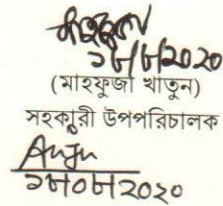 ১৮/৮/২০২০
(মাহফুজা খাতুন)
সহকারী উপপরিচালক
১৮/০৮/২০২০